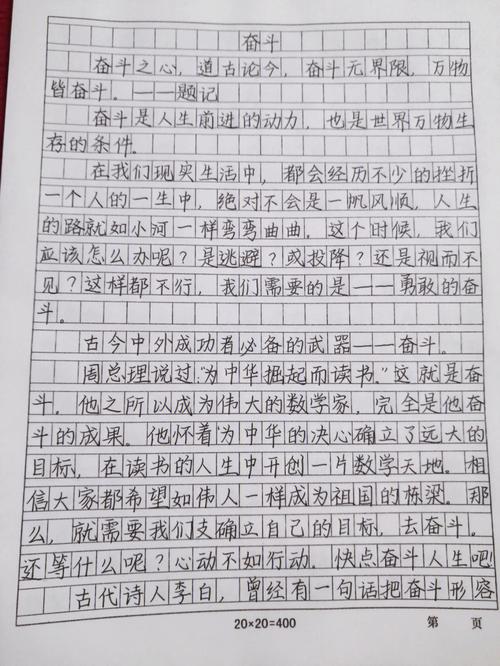 奋斗
奋斗之心，道古论今，奋斗无界限，万物
皆奋斗。——题记
奋斗是人生前进的动力，也是世界万物生
存的条件。
在我们现实生活中，都会经历不少的挫折
一个人的一生中，绝对不会是一帆风顺，人生
的路就如小河一样弯弯曲曲，这个时候，我们
应该怎么办呢？是逃避？或投降？还是视而不
见？这样都不行，我们需要的是——勇敢的奋
斗。
古今中外成功者必备的武器——奋斗。
周总理说过：“为中华掘起而读书。”这就是奋
斗。他之所以成为伟大的数学家，完全是他奋
斗的成果。他怀着“为中华的决心确立了远大的
目标，在读书的人生中开创一片数学天地。相
信大家都希望如伟人一样成为祖国的栋梁。那
么，就需要我们支确立自己的目标，去奋斗。
还等什么呢？心动不如行动。快点奋斗人生吧!
古代诗人李白，曾经有一句话把奋斗形容
20×20=400
第 页